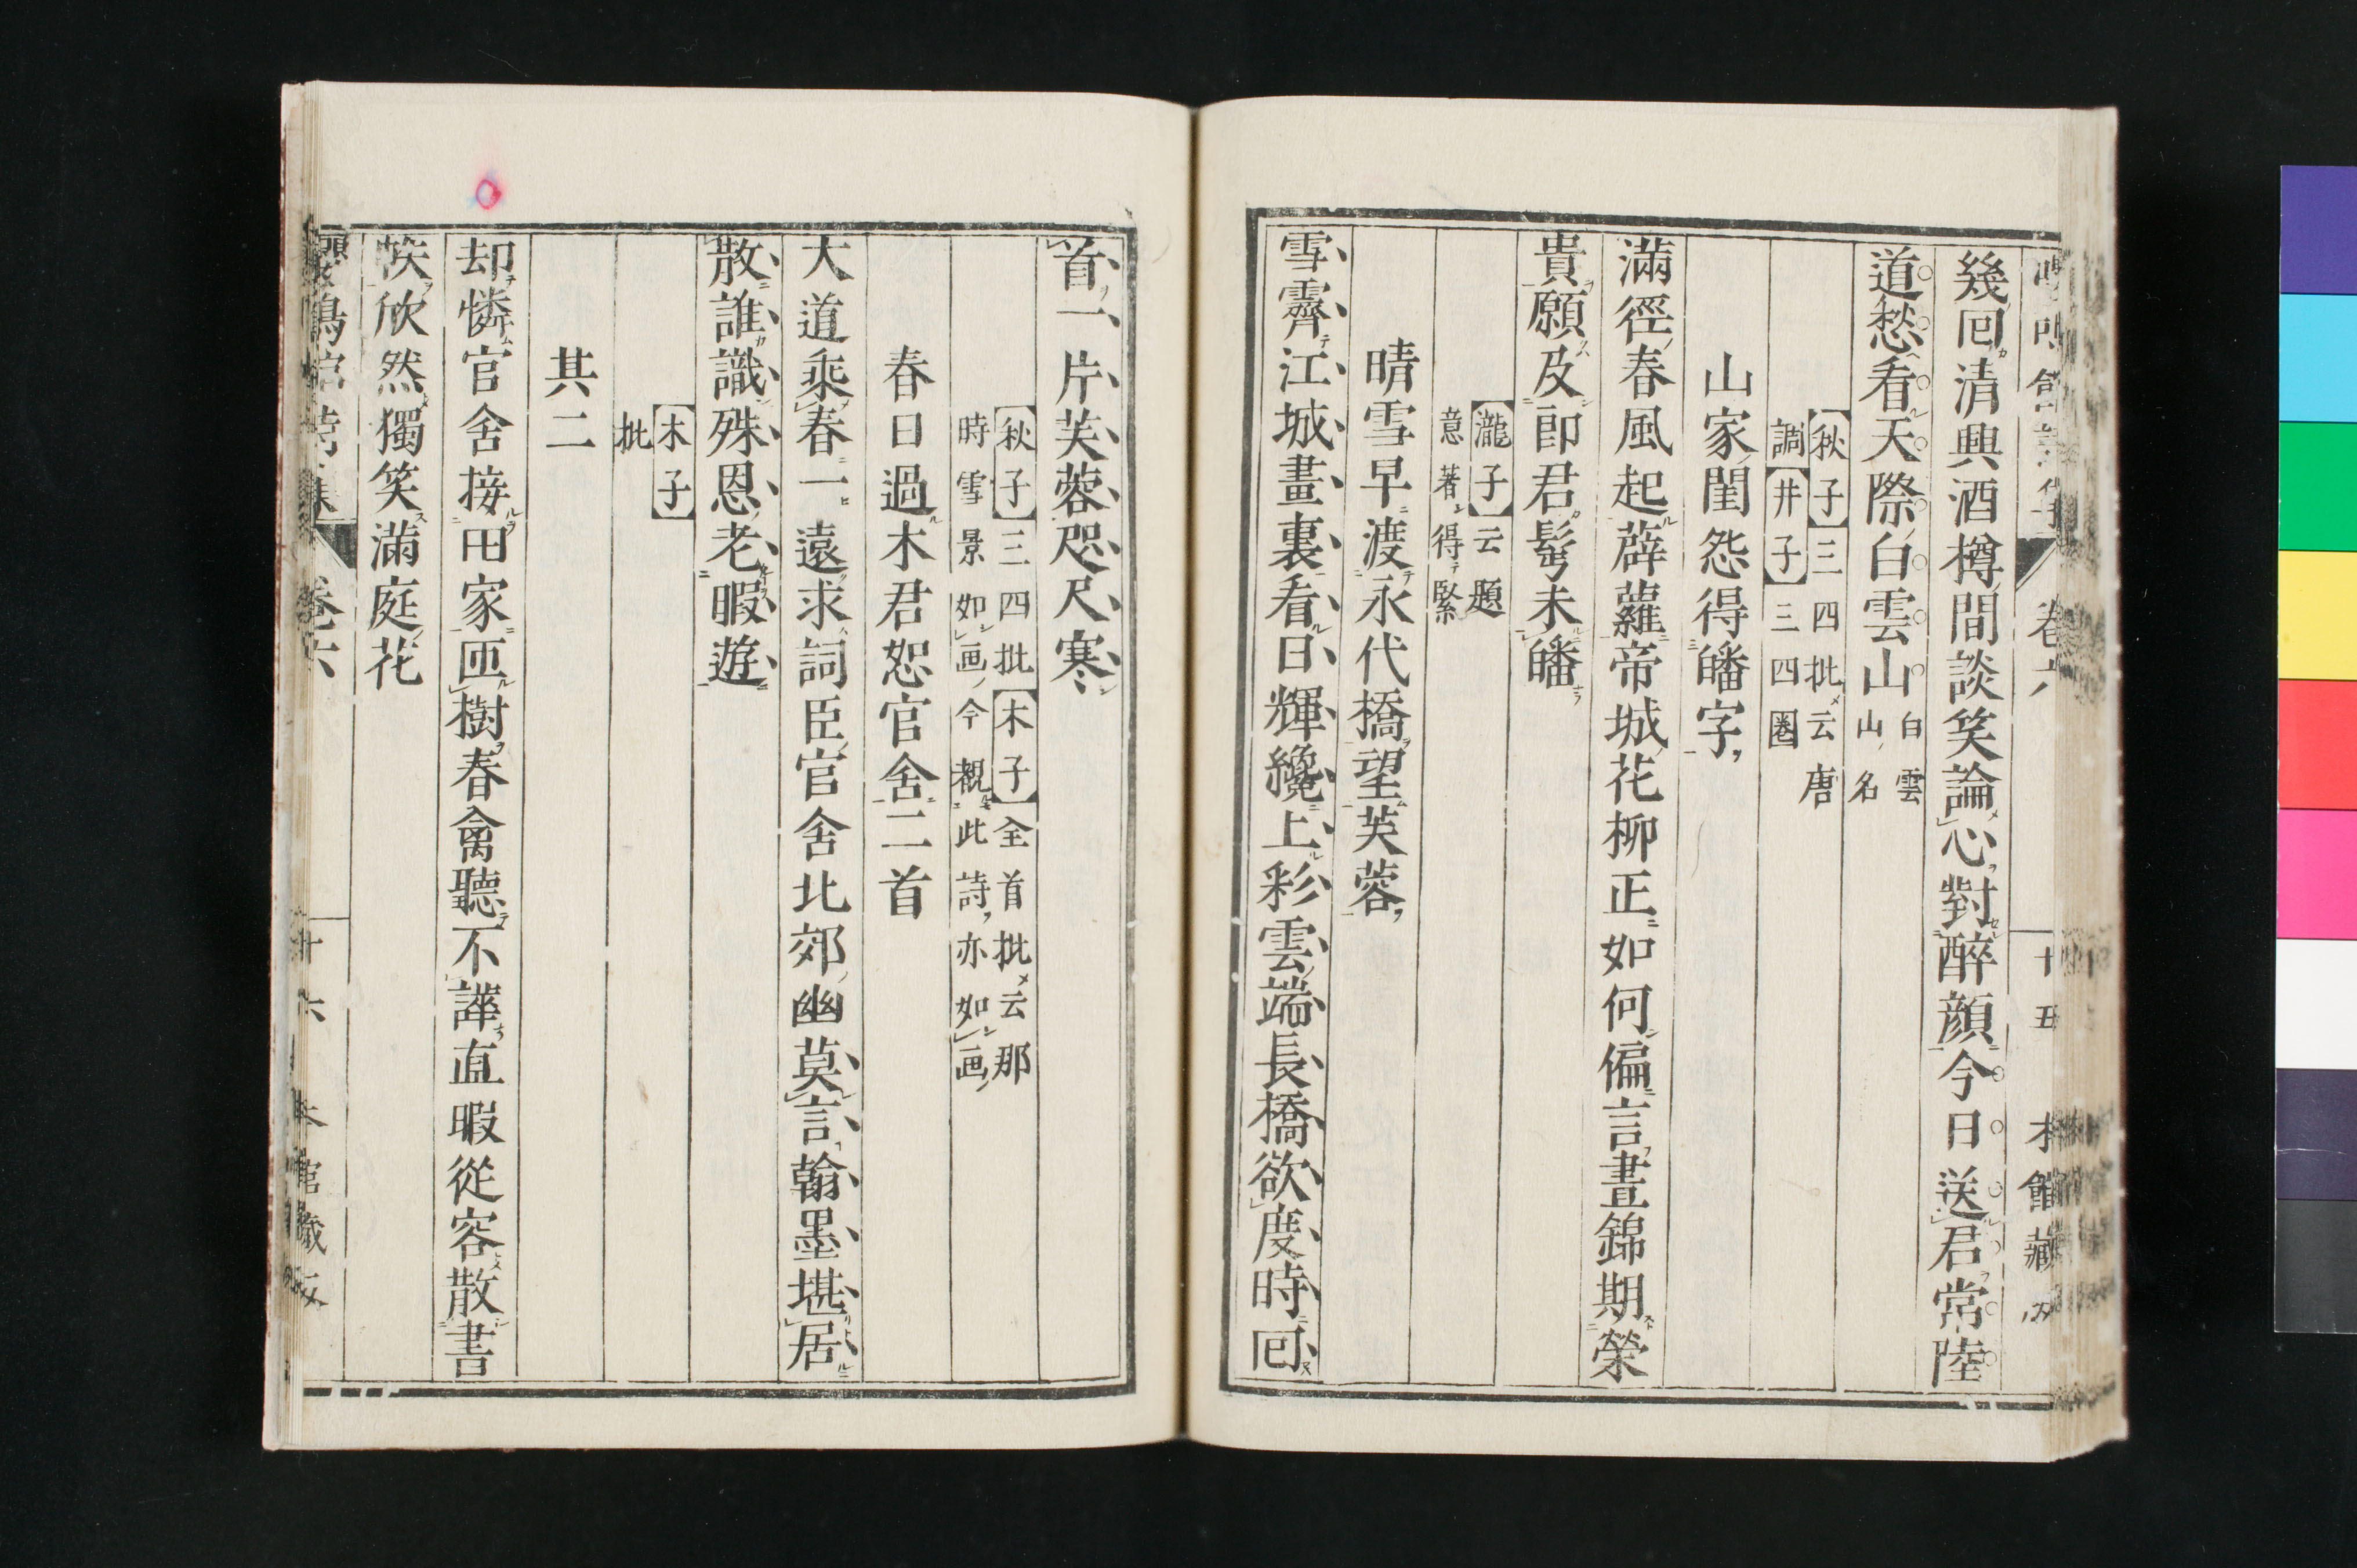 卷六
十五
幾回清興酒樽間談笑論心對醉顔今日送君常陸
道愁看天際白雲山白雲山名
【秋子】三四批云唐
調【井子】三四圏
山家閨怨得皤字
滿徑春風起薜蘿帝城花柳正如何偏言晝錦期榮
貴願及郎君髩未皤
【瀧子】云題
意著得緊
晴雪早渡永代橋望芙蓉
雪霽江城畫裏看日輝纔上彩雲端長橋欲度時囘
首一片芙蓉咫尺寒
【秋子】三四批【木子】全首批云那
時雪景如画今覩此詩亦如画
春日過木君恕官舍二首
大道乘春一遠求詞臣官舍北郊幽莫言翰墨堪居
散誰識殊恩老暇遊
【木子】
批
其二
却憐官舍接田家匝樹春禽聽不譁直暇從容散書
帙欣然獨笑滿庭花
卷六
十六